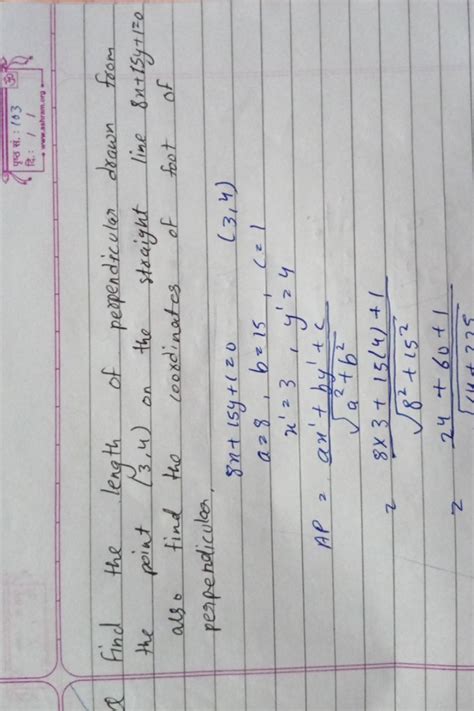 ॐ
पृष्ठ सं.: 103
दि.: / /
www.ashram.org
Q Find the length of perpendicular drawn from
the point (3,4) on the straight line 8x+15y+1=0
also find the coordinates of foot of
perpendicular.
8x+15y+1=0 (3,4)
a=8, b=15, c=1
x'=3, y'=4
AP = ax'+by'+c
√a²+b²
= 8×3+15(4)+1
√8²+15²
= 24+60+1